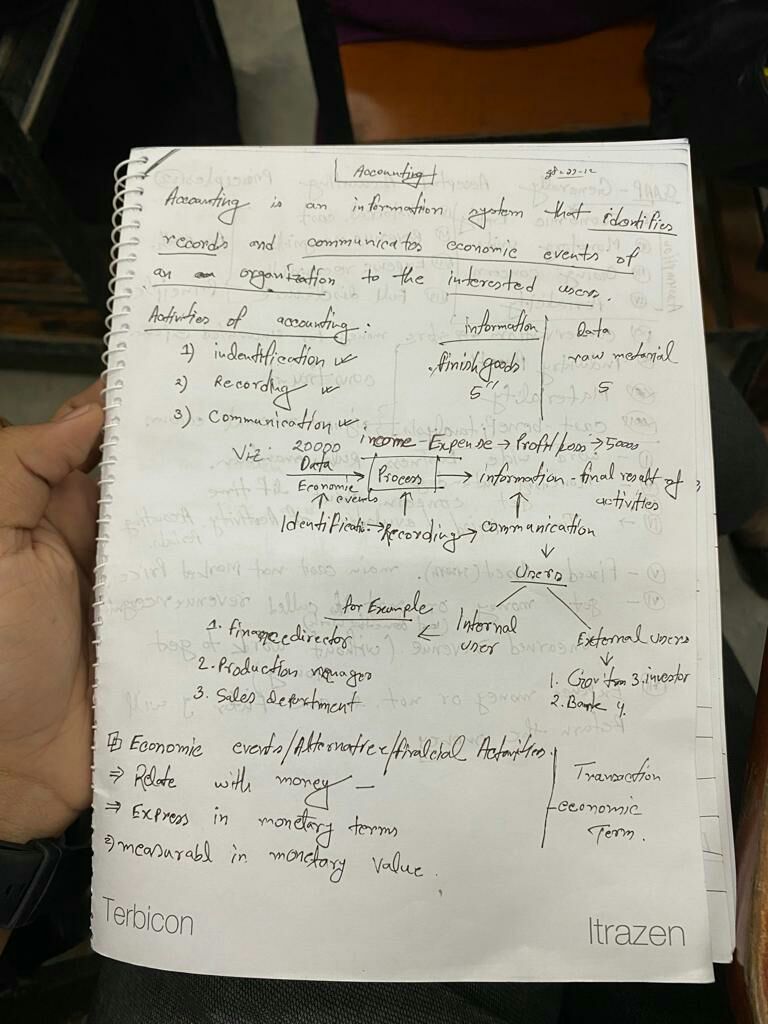 Accounting
Accounting is an information system that identifies
records and communicates economic events of
an organization to the interested users.
Activities of accounting:
1) indentification
2) Recording
3) Communication
information | Data
finish goods | raw meterial
5" | 5
income - Expense → Profit/Loss → 5000
Viz 20000
Data → Process → information - final result of
Economic events
activities
Identificatio → Recording → communication
Users
for Example ← Internal user
External users
1. finance director
2. Production manager
3. Sales department
1. Gov't 3. investor
2. Bank 4.
Economic events/Alternative/financial Activities.
⇒ Relate with money -
⇒ Express in monetary terms
⇒ measurabl in monetary value.
Transaction
economic
Term.
Terbicon
Itrazen